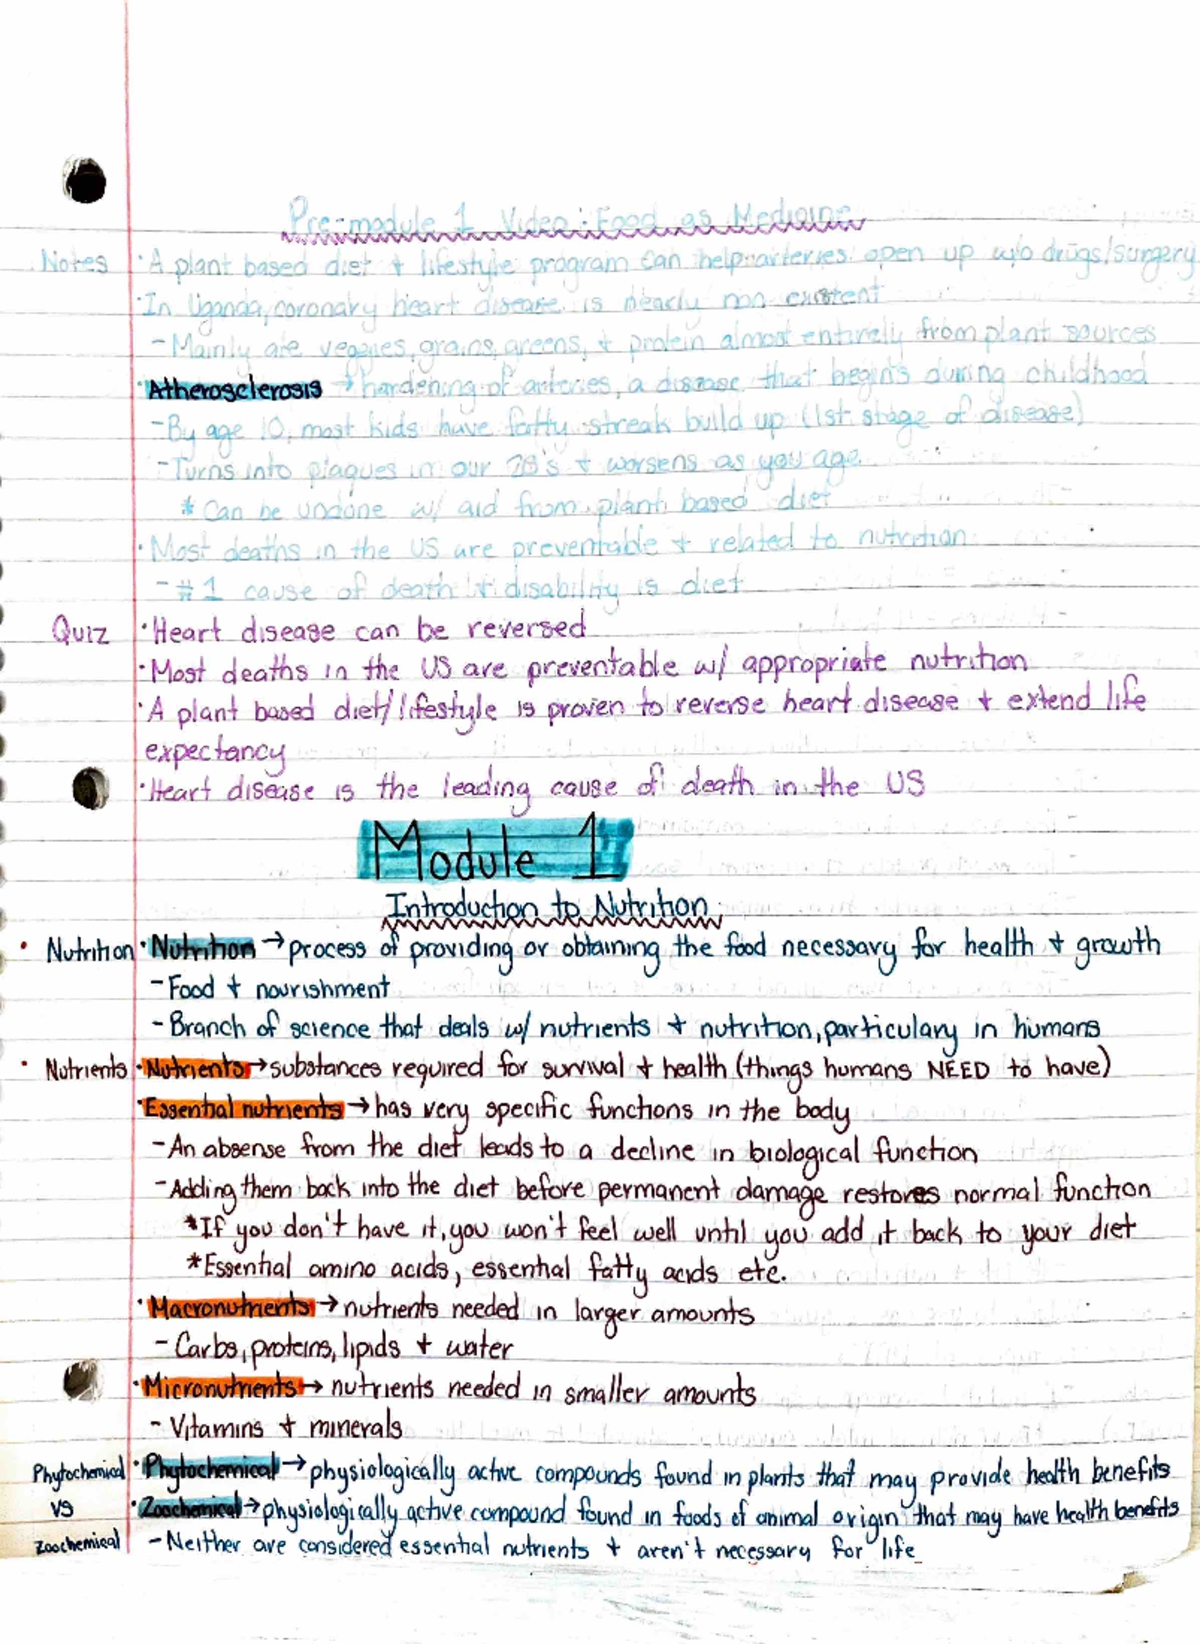 Pre-module 1 Video: Food as Medicine
Notes · A plant based diet + lifestyle program can help arteries open up w/o drugs/surgery
· In Uganda, coronary heart disease is nearly non existent
- Mainly ate veggies, grains, greens, + protein almost entirely from plant sources
· Atherosclerosis → hardening of arteries, a disease that begins during childhood
- By age 10, most kids have fatty streak build up (1st stage of disease)
- Turns into plaques in our 20's + worsens as you age
* Can be undone w/ aid from plant based diet
· Most deaths in the US are preventable + related to nutrition
- #1 cause of death + disability is diet
Quiz · Heart disease can be reversed
· Most deaths in the US are preventable w/ appropriate nutrition
· A plant based diet/lifestyle is proven to reverse heart disease + extend life
expectancy
· Heart disease is the leading cause of death in the US
Module 1
Introduction to Nutrition
· Nutrition · Nutrition → process of providing or obtaining the food necessary for health + growth
- Food + nourishment
- Branch of science that deals w/ nutrients + nutrition, particulary in humans
· Nutrients · Nutrients → substances required for survival + health (things humans NEED to have)
· Essential nutrients → has very specific functions in the body
- An absense from the diet leads to a decline in biological function
- Adding them back into the diet before permanent damage restores normal function
* If you don't have it, you won't feel well until you add it back to your diet
* Essential amino acids, essential fatty acids etc.
· Macronutrients → nutrients needed in larger amounts
- Carbs, proteins, lipids + water
· Micronutrients → nutrients needed in smaller amounts
- Vitamins + minerals
Phytochemical · Phytochemical → physiologically active compounds found in plants that may provide health benefits
vs · Zoochemical → physiologically active compound found in foods of animal origin that may have health benefits
Zoochemical - Neither are considered essential nutrients + aren't necessary for life